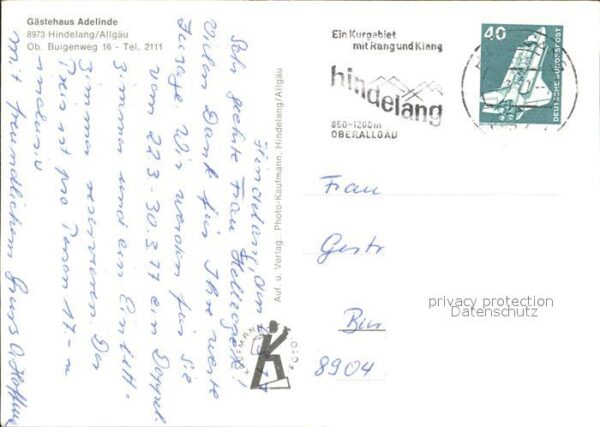 Gästehaus Adelinde
8973 Hindelang/Allgäu
Ob. Buigenweg 16 - Tel. 2111
Ein Kurgebiet
mit Rang und Klang
hindelang
850-1200m
OBERALLGÄU
40
DEUTSCHE BUNDESPOST
Hindelang, den
Sehr geehrte Frau
Vielen Dank für Ihre werte
Zusage. Wir werden für Sie
vom 22.3-30.3 77 ein Doppel.
Zimmer und ein Einbett-
Zimmer reservieren. Der
Preis ist pro Person 17.-
mit freundlichem Gruss
Auf. u. Verlag.: Photo-Kaufmann, Hindelang/Allgäu
KAUFMANN
FOTO
Frau
Gestr
8904
privacy protection
Datenschutz